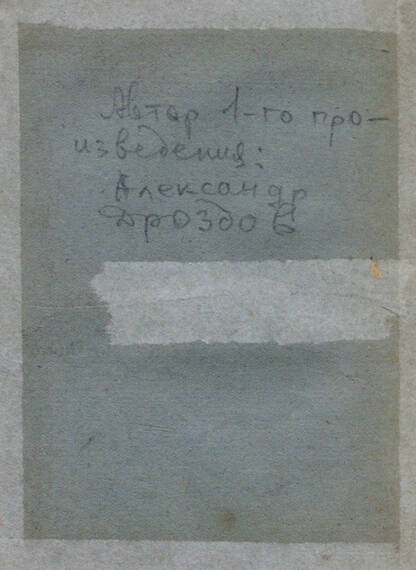 Автор 1-го про-
изведения:
Александр
Дроздов